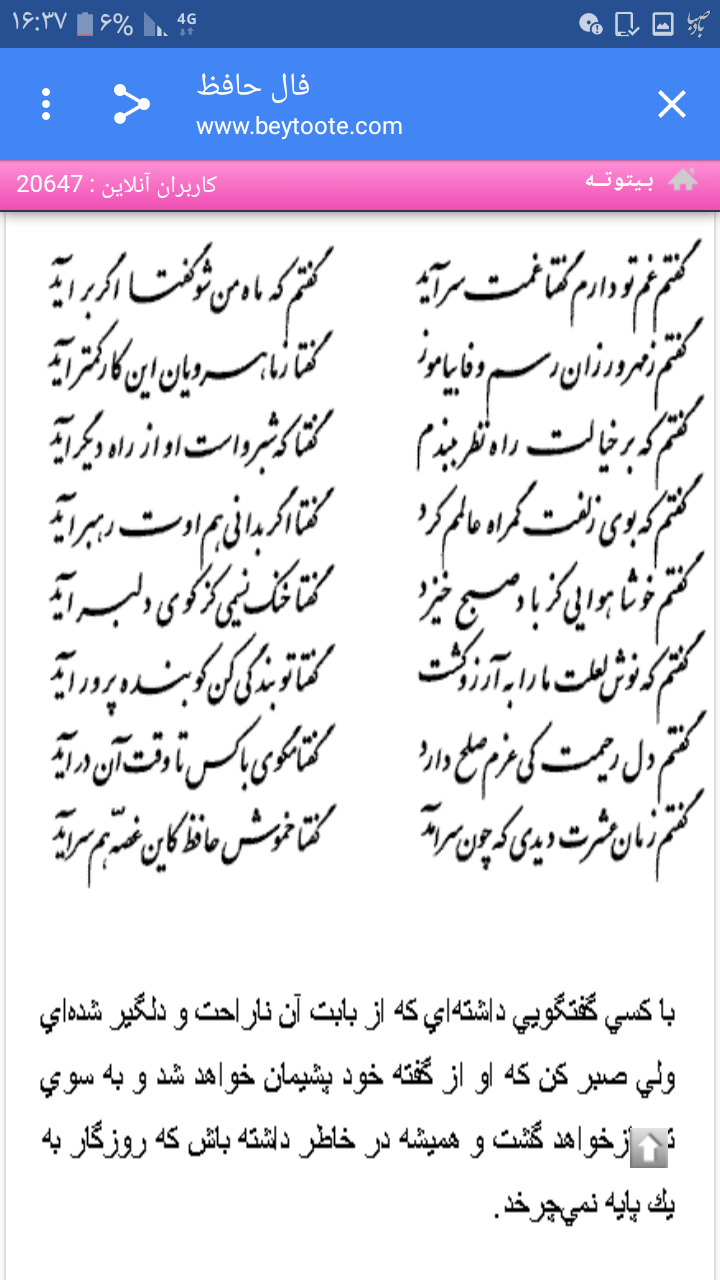 ۱۶:۳۷ ۶% 4G
فال حافظ
www.beytoote.com
بیتوته
کاربران آنلاین : 20647
گفتم غم تو دارم گفتا غمت سرآید گفتم که ماه من شو گفتا اگر برآید
گفتم ز مهرورزان رسم وفا بیاموز گفتا ز ماهرویان این کار کمتر آید
گفتم که بر خیالت راه نظر ببندم گفتا که شبرو است او از راه دیگر آید
گفتم که بوی زلفت گمراه عالمم کرد گفتا اگر بدانی هم اوت رهبر آید
گفتم خوشا هوایی کز باد صبح خیزد گفتا خنک نسیمی کز کوی دلبر آید
گفتم که نوش لعلت ما را به آرزو کشت گفتا تو بندگی کن کو بنده پرور آید
گفتم دل رحیمت کی عزم صلح دارد گفتا مگوی با کس تا وقت آن درآید
گفتم زمان عشرت دیدی که چون سرآمد گفتا خموش حافظ کاین غصّه هم سرآید
با كسي گفتگويي داشته‌اي كه از بابت آن ناراحت و دلگير شده‌اي
ولي صبر كن كه او از گفته خود پشيمان خواهد شد و به سوي
خواهد گشت و هميشه در خاطر داشته باش كه روزگار به
يك پايه نمي‌چرخد.